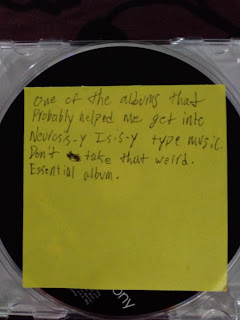 One of the albums that
Probably helped me get into
Neurosis-y Isis-y type music.
Don't take that weird.
Essential album.
ony